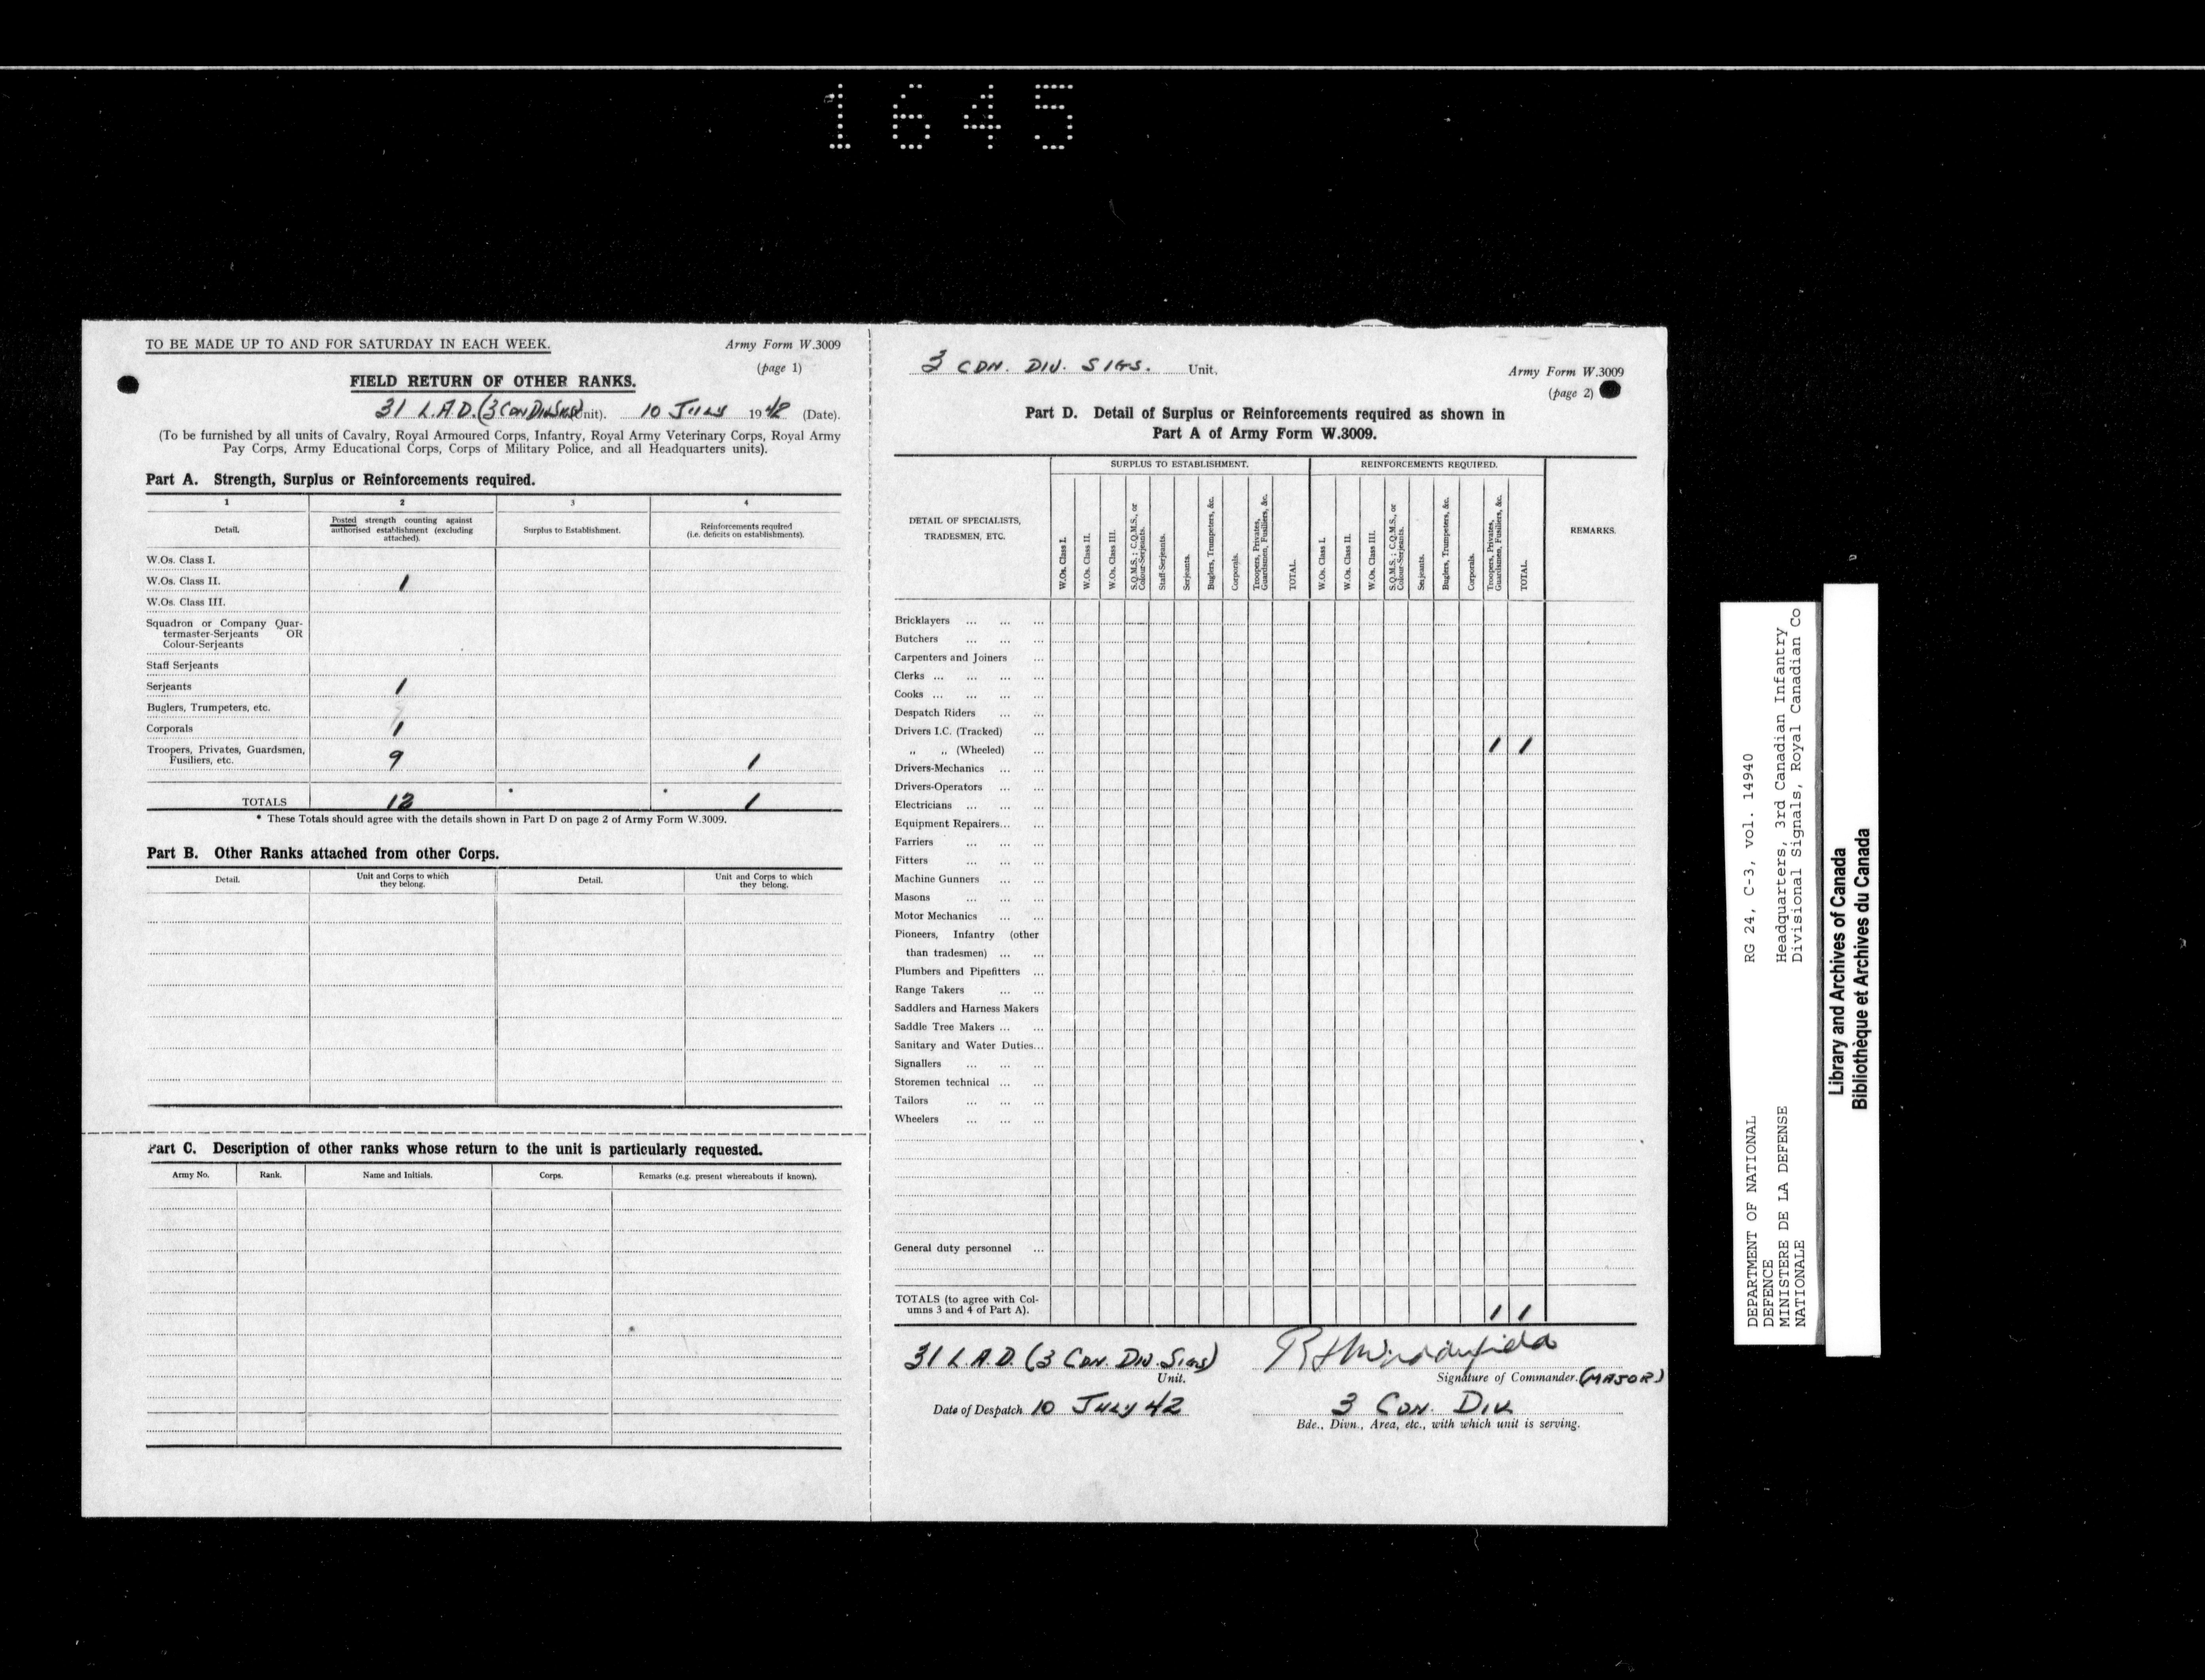 1645
TO BE MADE UP TO AND FOR SATURDAY IN EACH WEEK.
Army Form W.3009
(page 1)
FIELD RETURN OF OTHER RANKS.
31 L.A.D. (3 CDN DIV SIGS) Unit). 10 JULY 1942 (Date).
(To be furnished by all units of Cavalry, Royal Armoured Corps, Infantry, Royal Army Veterinary Corps, Royal Army
Pay Corps, Army Educational Corps, Corps of Military Police, and all Headquarters units).
Part A. Strength, Surplus or Reinforcements required.
1 2 3 4
Detail.
Posted strength counting against
authorised establishment (excluding
attached).
Surplus to Establishment.
Reinforcements required
(i.e. deficits on establishments).
W.Os. Class I.
W.Os. Class II. 1
W.Os. Class III.
Squadron or Company Quar-
termaster-Serjeants OR
Colour-Serjeants
Staff Serjeants
Serjeants 1
Buglers, Trumpeters, etc.
Corporals 1
Troopers, Privates, Guardsmen,
Fusiliers, etc. 9 1
TOTALS 12 * * 1
* These Totals should agree with the details shown in Part D on page 2 of Army Form W.3009.
Part B. Other Ranks attached from other Corps.
Detail.
Unit and Corps to which
they belong.
Detail.
Unit and Corps to which
they belong.
Part C. Description of other ranks whose return to the unit is particularly requested.
Army No. Rank. Name and Initials. Corps. Remarks (e.g. present whereabouts if known).
3 CDN. DIV. SIGS. Unit.
Army Form W.3009
(page 2)
Part D. Detail of Surplus or Reinforcements required as shown in
Part A of Army Form W.3009.
DETAIL OF SPECIALISTS,
TRADESMEN, ETC.
SURPLUS TO ESTABLISHMENT.
W.Os. Class I.
W.Os. Class II.
W.Os. Class III.
S.Q.M.S.; C.Q.M.S., or
Colour-Serjeants.
Staff-Serjeants.
Serjeants.
Buglers, Trumpeters, &c.
Corporals.
Troopers, Privates,
Guardsmen, Fusiliers, &c.
TOTAL.
REINFORCEMENTS REQUIRED.
W.Os. Class I.
W.Os. Class II.
W.Os. Class III.
S.Q.M.S.; C.Q.M.S., or
Colour-Serjeants.
Serjeants.
Buglers, Trumpeters, &c.
Corporals.
Troopers, Privates,
Guardsmen, Fusiliers, &c.
TOTAL.
REMARKS.
Bricklayers ... ... ...
Butchers ... ... ...
Carpenters and Joiners ...
Clerks ... ... ... ...
Cooks ... ... ... ...
Despatch Riders ... ...
Drivers I.C. (Tracked) ...
„ „ (Wheeled) ... 1 1
Drivers-Mechanics ... ...
Drivers-Operators ... ...
Electricians ... ... ...
Equipment Repairers... ...
Farriers ... ... ...
Fitters ... ... ...
Machine Gunners ... ...
Masons ... ... ...
Motor Mechanics ... ...
Pioneers, Infantry (other
than tradesmen) ... ...
Plumbers and Pipefitters ...
Range Takers ... ...
Saddlers and Harness Makers
Saddle Tree Makers ... ...
Sanitary and Water Duties...
Signallers ... ... ...
Storemen technical ... ...
Tailors ... ... ...
Wheelers ... ... ...
General duty personnel ...
TOTALS (to agree with Col-
umns 3 and 4 of Part A). 1 1
31 L.A.D. (3 CDN. DIV. SIGS)
Unit.
Signature of Commander. (MAJOR)
Date of Despatch 10 JULY 42
3 CDN. DIV
Bde., Divn., Area, etc., with which unit is serving.
DEPARTMENT OF NATIONAL
DEFENCE
MINISTERE DE LA DEFENSE
NATIONALE
RG 24, C-3, vol. 14940
Headquarters, 3rd Canadian Infantry
Divisional Signals, Royal Canadian Co
Library and Archives of Canada
Bibliothèque et Archives du Canada